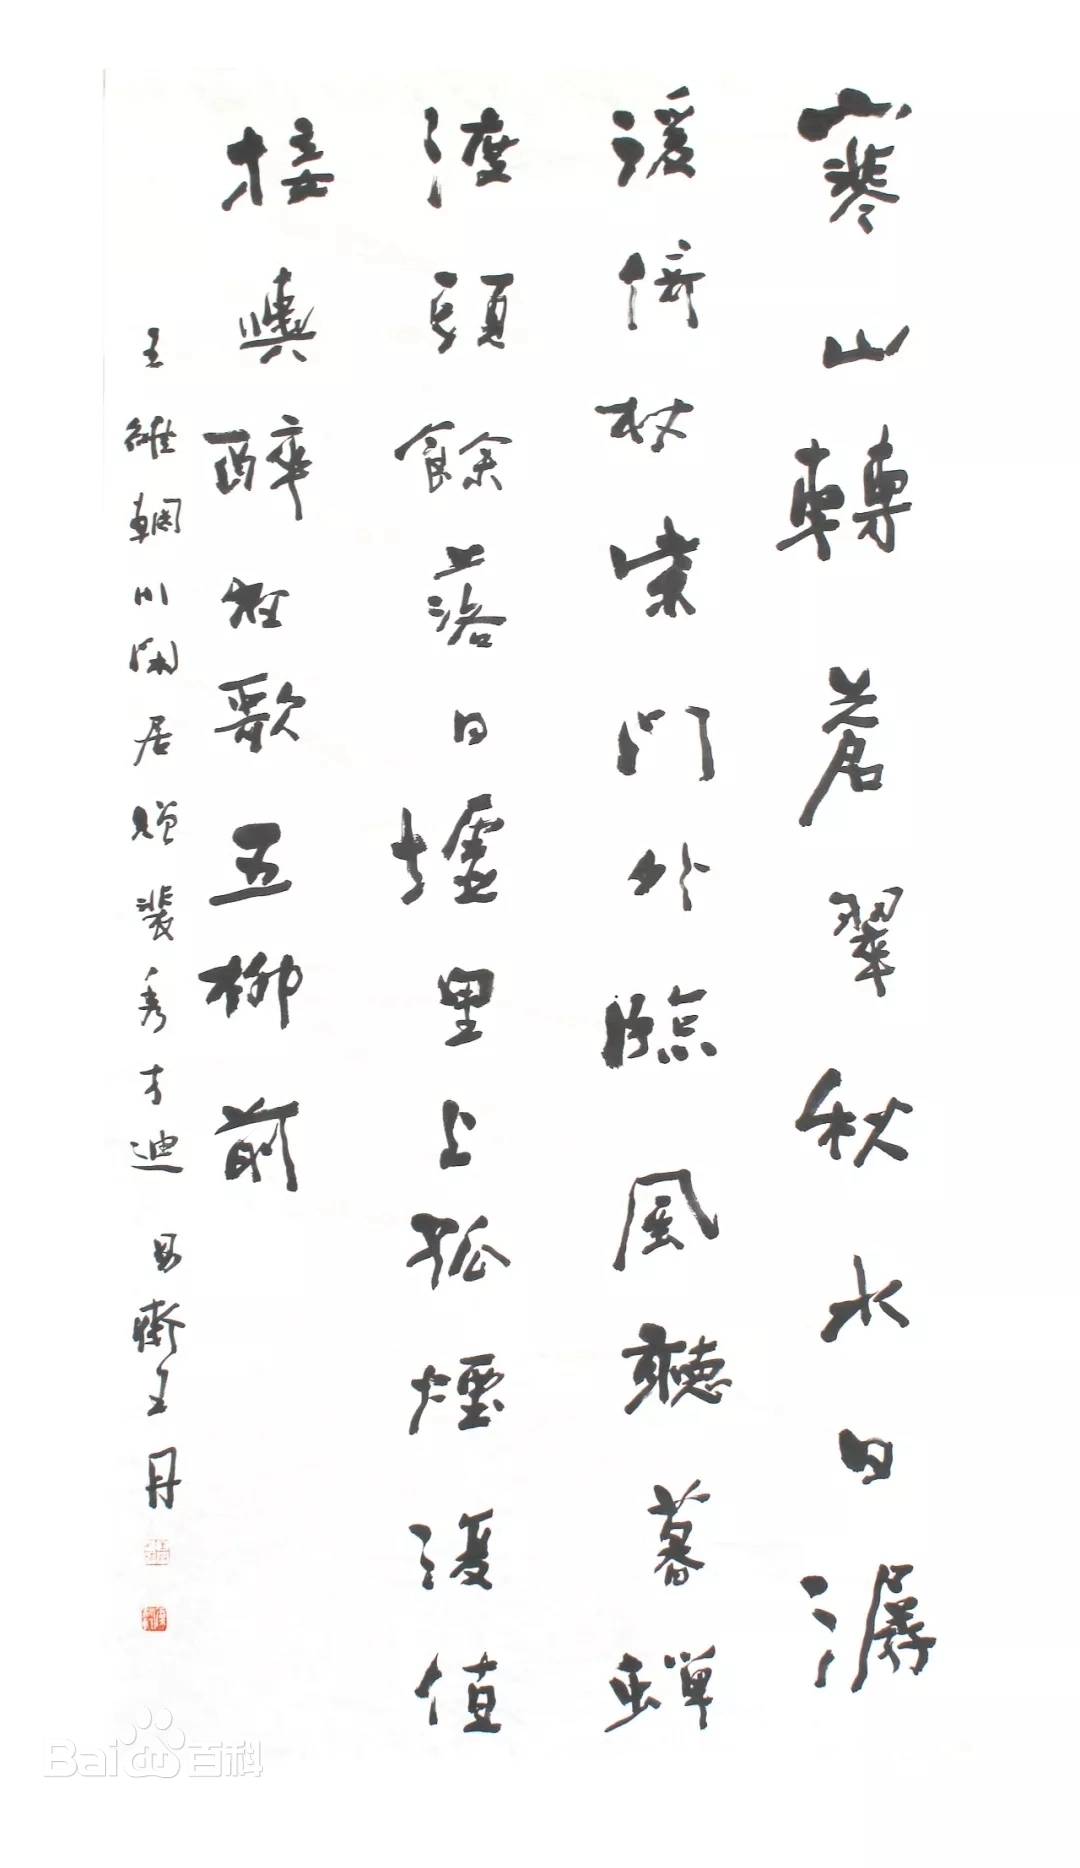 寒山轉蒼翠秋水日潺
湲倚杖柴門外臨風聽暮蟬
渡頭餘落日墟里上孤煙復值
接輿醉狂歌五柳前
王維輞川閑居贈裴秀才迪 王丹
Bai百科